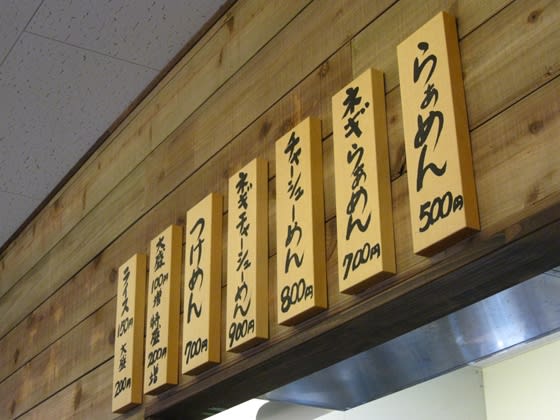 らぁめん 500円
ネギらぁめん 700円
チャーシューめん 800円
ネギチャーシューめん 900円
つけめん 700円
大盛 100円増 特盛 200円増
ライス 150円 大盛 200円